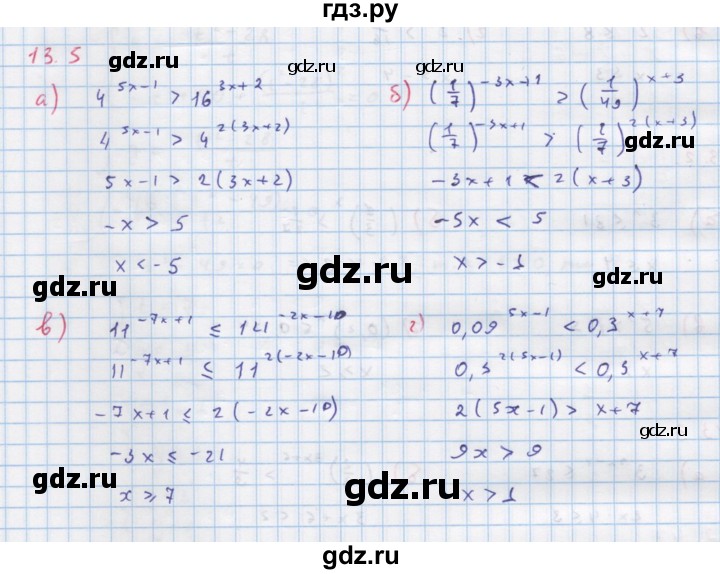 гдз.ру
13.5
а) 4^(5x-1) > 16^(3x+2)
4^(5x-1) > 4^(2(3x+2))
5x-1 > 2(3x+2)
-x > 5
x < -5
б) (1/7)^(-3x+1) > (1/49)^(x+3)
(1/7)^(-3x+1) > (1/7)^(2(x+3))
-3x+1 < 2(x+3)
-5x < 5
x > -1
в) 11^(-7x+1) ≤ 121^(-2x-10)
11^(-7x+1) ≤ 11^(2(-2x-10))
-7x+1 ≤ 2(-2x-10)
-3x ≤ -21
x ≥ 7
г) 0,09^(5x-1) < 0,3^(x+7)
0,3^(2(5x-1)) < 0,3^(x+7)
2(5x-1) > x+7
9x > 9
x > 1
gdz.ru
gdz.ru
gdz.ru
gdz.ru
gdz.ru
gdz.ru
gdz.ru
gdz.ru
gdz.ru
gdz.ru
gdz.ru
gdz.ru
gdz.ru
gdz.ru